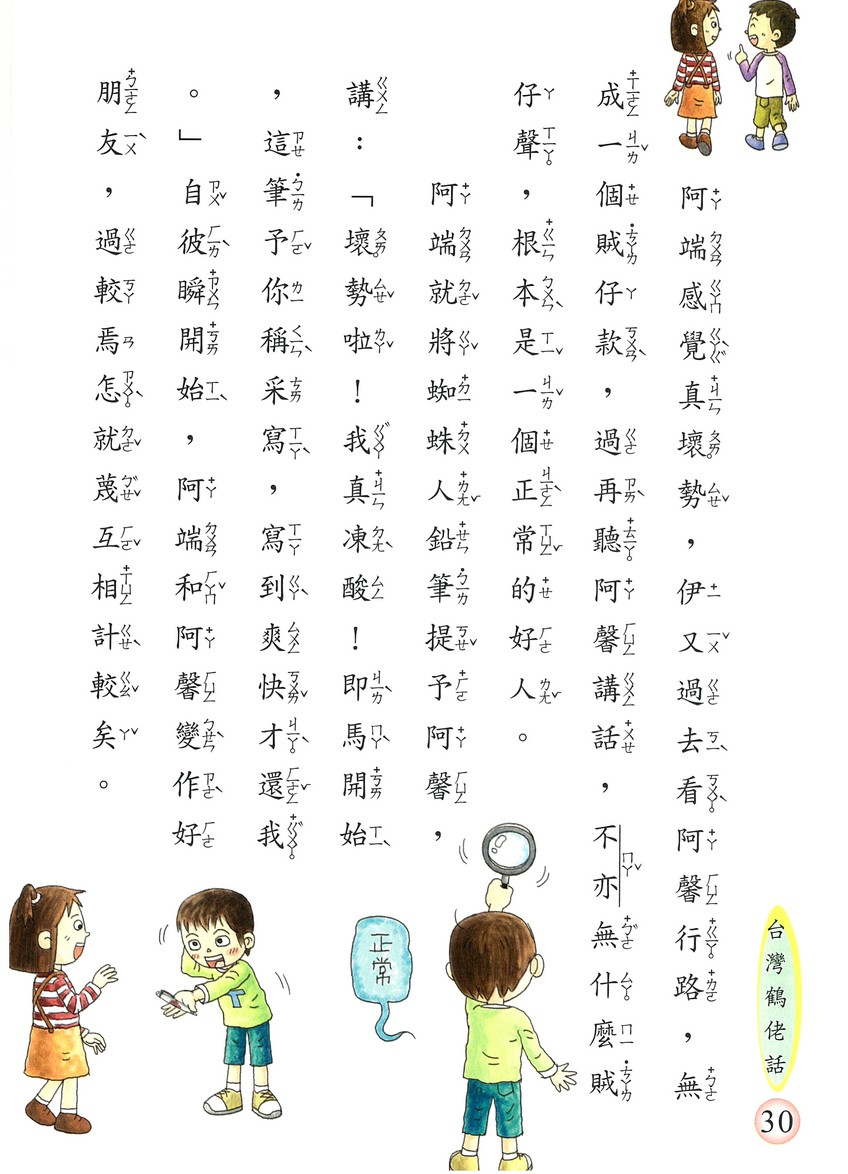 阿端感覺真壞勢，伊又過去看阿馨行路，無
成一個賊仔款，過再聽阿馨講話，不亦無什麼賊
仔聲，根本是一個正常的好人。
阿端就將蜘蛛人鉛筆提予阿馨，
講：「壞勢啦！我真凍酸！即馬開始
，這筆予你稱采寫，寫到爽快才還我
。」自彼瞬開始，阿端和阿馨變作好
朋友，過較焉怎就蔑互相計較矣。
正常
台灣鶴佬話
30